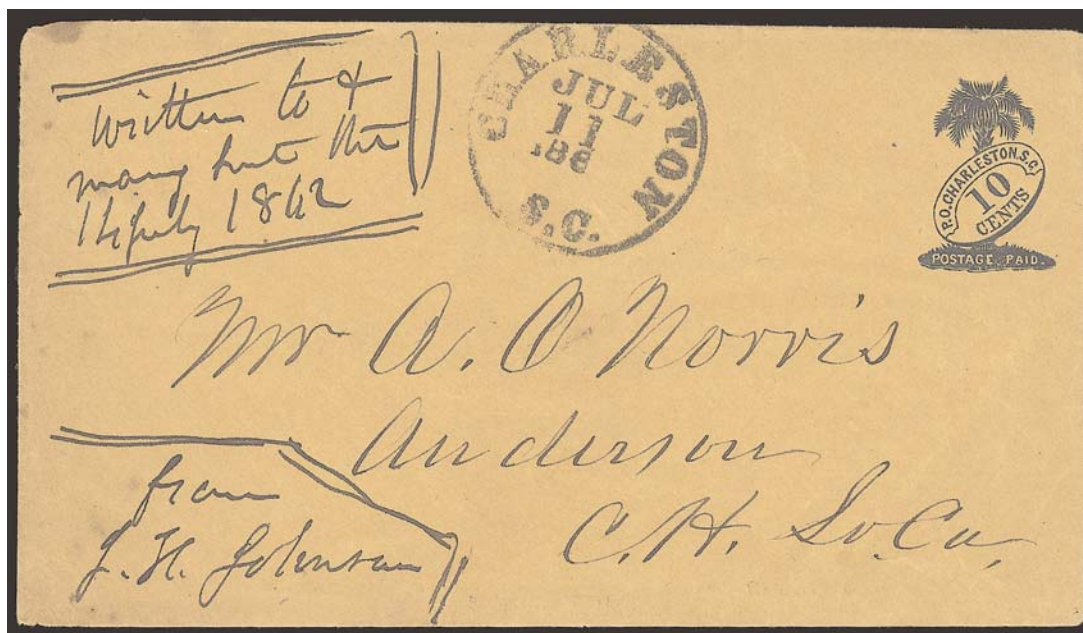 written to &
many
July 1862
CHARLESTON
JUL
11
186
S.C.
P.O. CHARLESTON. S.C.
10
CENTS
POSTAGE PAID.
Mr A. O Norris
Anderson
C.H. So. Ca.
from
J. H. Johnson